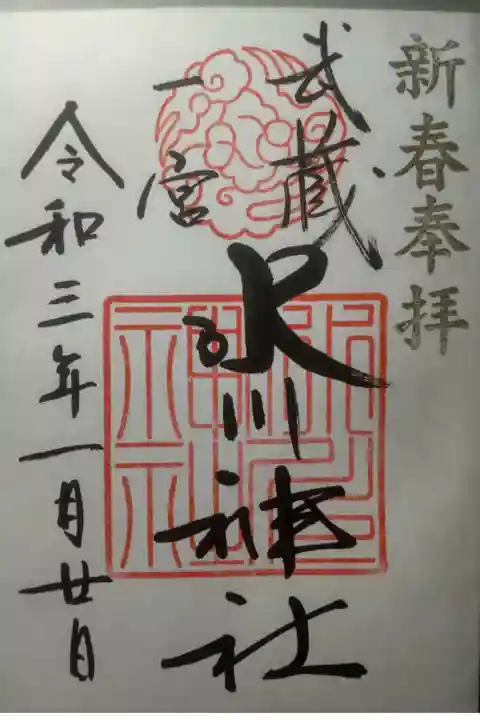 新春奉拝
武蔵
一宮
氷川神社
令和三年一月廿日
氷川神社